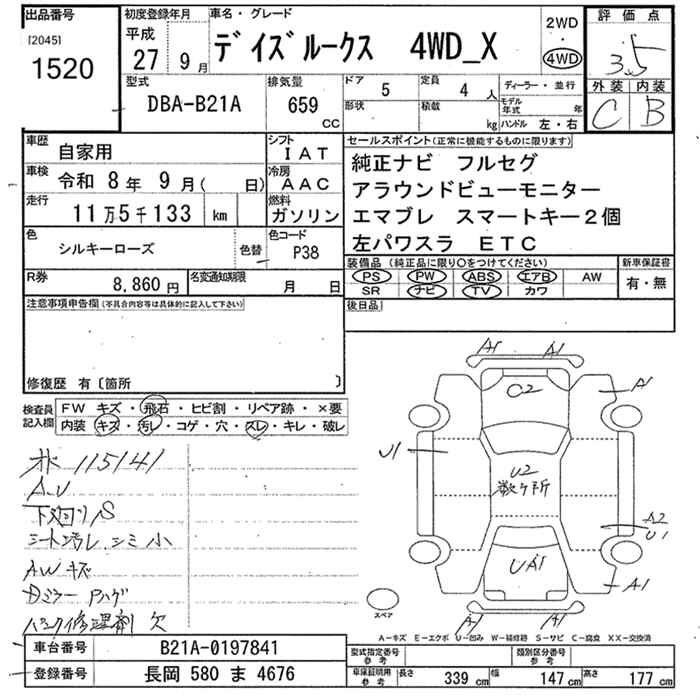 出品番号
[2045]
1520
初度登録年月
平成
27 9月
車名・グレード
デイズルークス 4WD_X
2WD
・
4WD
評価点
3.5
外装 内装
C B
型式
DBA-B21A
排気量
659
CC
ドア
5
定員
4 人
形状
積載
kg
ディーラー・並行
モデル年式 年
ハンドル 左・右
車歴
自家用
シフト
IAT
車検
令和 8年 9月( 日)
冷房
AAC
走行
11万5千133 km
燃料
ガソリン
色
シルキーローズ
色替
色コード
P38
R券
8,860円
名変通知期限
月 日
セールスポイント(正常に機能するものに限ります)
純正ナビ フルセグ
アラウンドビューモニター
エマブレ スマートキー2個
左パワスラ ETC
装備品 (純正品に限り○をつけてください)
新車保証書
PS PW ABS エアB AW
有・無
SR ナビ TV カワ
後日品
注意事項申告欄(不具合内容等は具体的に記入して下さい)
修復歴 有〔箇所 〕
検査員
記入欄
FW キズ・飛石・ヒビ割・リペア跡・×要
内装 キズ・汚レ・コゲ・穴・スレ・キレ・破レ
オド 115141
A-U
下廻り S
シート汚レ シミ 小
AWキズ
Dミラー Pハゲ
パンク修理剤 欠
A1 A1
O2
A1
U1
U2
数ヶ所
A2
U1
UA1
A1
A1 A1
スペア
A-キズ E-エクボ U-凹み W-補修跡 S-サビ C-腐食 XX-交換済
車台番号
B21A-0197841
登録番号
長岡 580 ま 4676
型式指定番号
参考
類別区分番号
参考
車庫証明用
参考
長さ 339 cm
幅 147 cm
高さ 177 cm